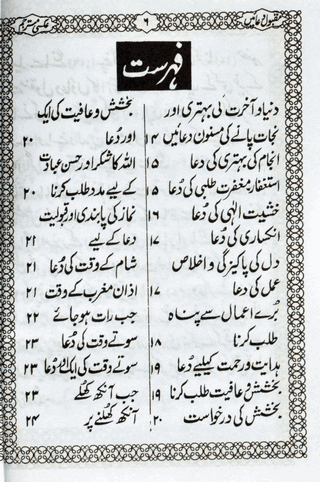 مقبول دعائیں
۶
عکسی مترجم
فہرست
دنیا و آخرت کی بہتری اور
نجات پانے کی مسنون دعائیں ۱۴
انجام کی بہتری کی دعا ۱۵
استغفار مغفرت طلبی کی دُعا ۱۵
خشیت الٰہی کی دُعا ۱۶
انکساری کی دُعا ۱۷
دل کی پاکیزگی و اخلاص
عمل کی دعا ۱۷
بُرے اعمال سے پناہ
طلب کرنا ۱۸
ہدایت و رحمت کیلیے دُعا ۱۹
بخشش و عافیت طلب کرنا ۱۹
بخشش کی درخواست ۲۰
بخشش و عافیت کی ایک
اور دُعا ۲۰
اللہ کا شکر اور حسن عبادت
کے لیے مدد طلب کرنا ۲۰
نماز کی پابندی اور قبولیت
دعا کے لیے ۲۱
شام کے وقت کی دُعا ۲۱
اذان مغرب کے وقت ۲۱
جب رات ہو جائے ۲۲
سوتے وقت کی دُعا ۲۳
سوتے وقت کی ایک اور دُعا ۲۳
جب آنکھ کھلے ۲۳
آنکھ کھلنے پر ۲۴